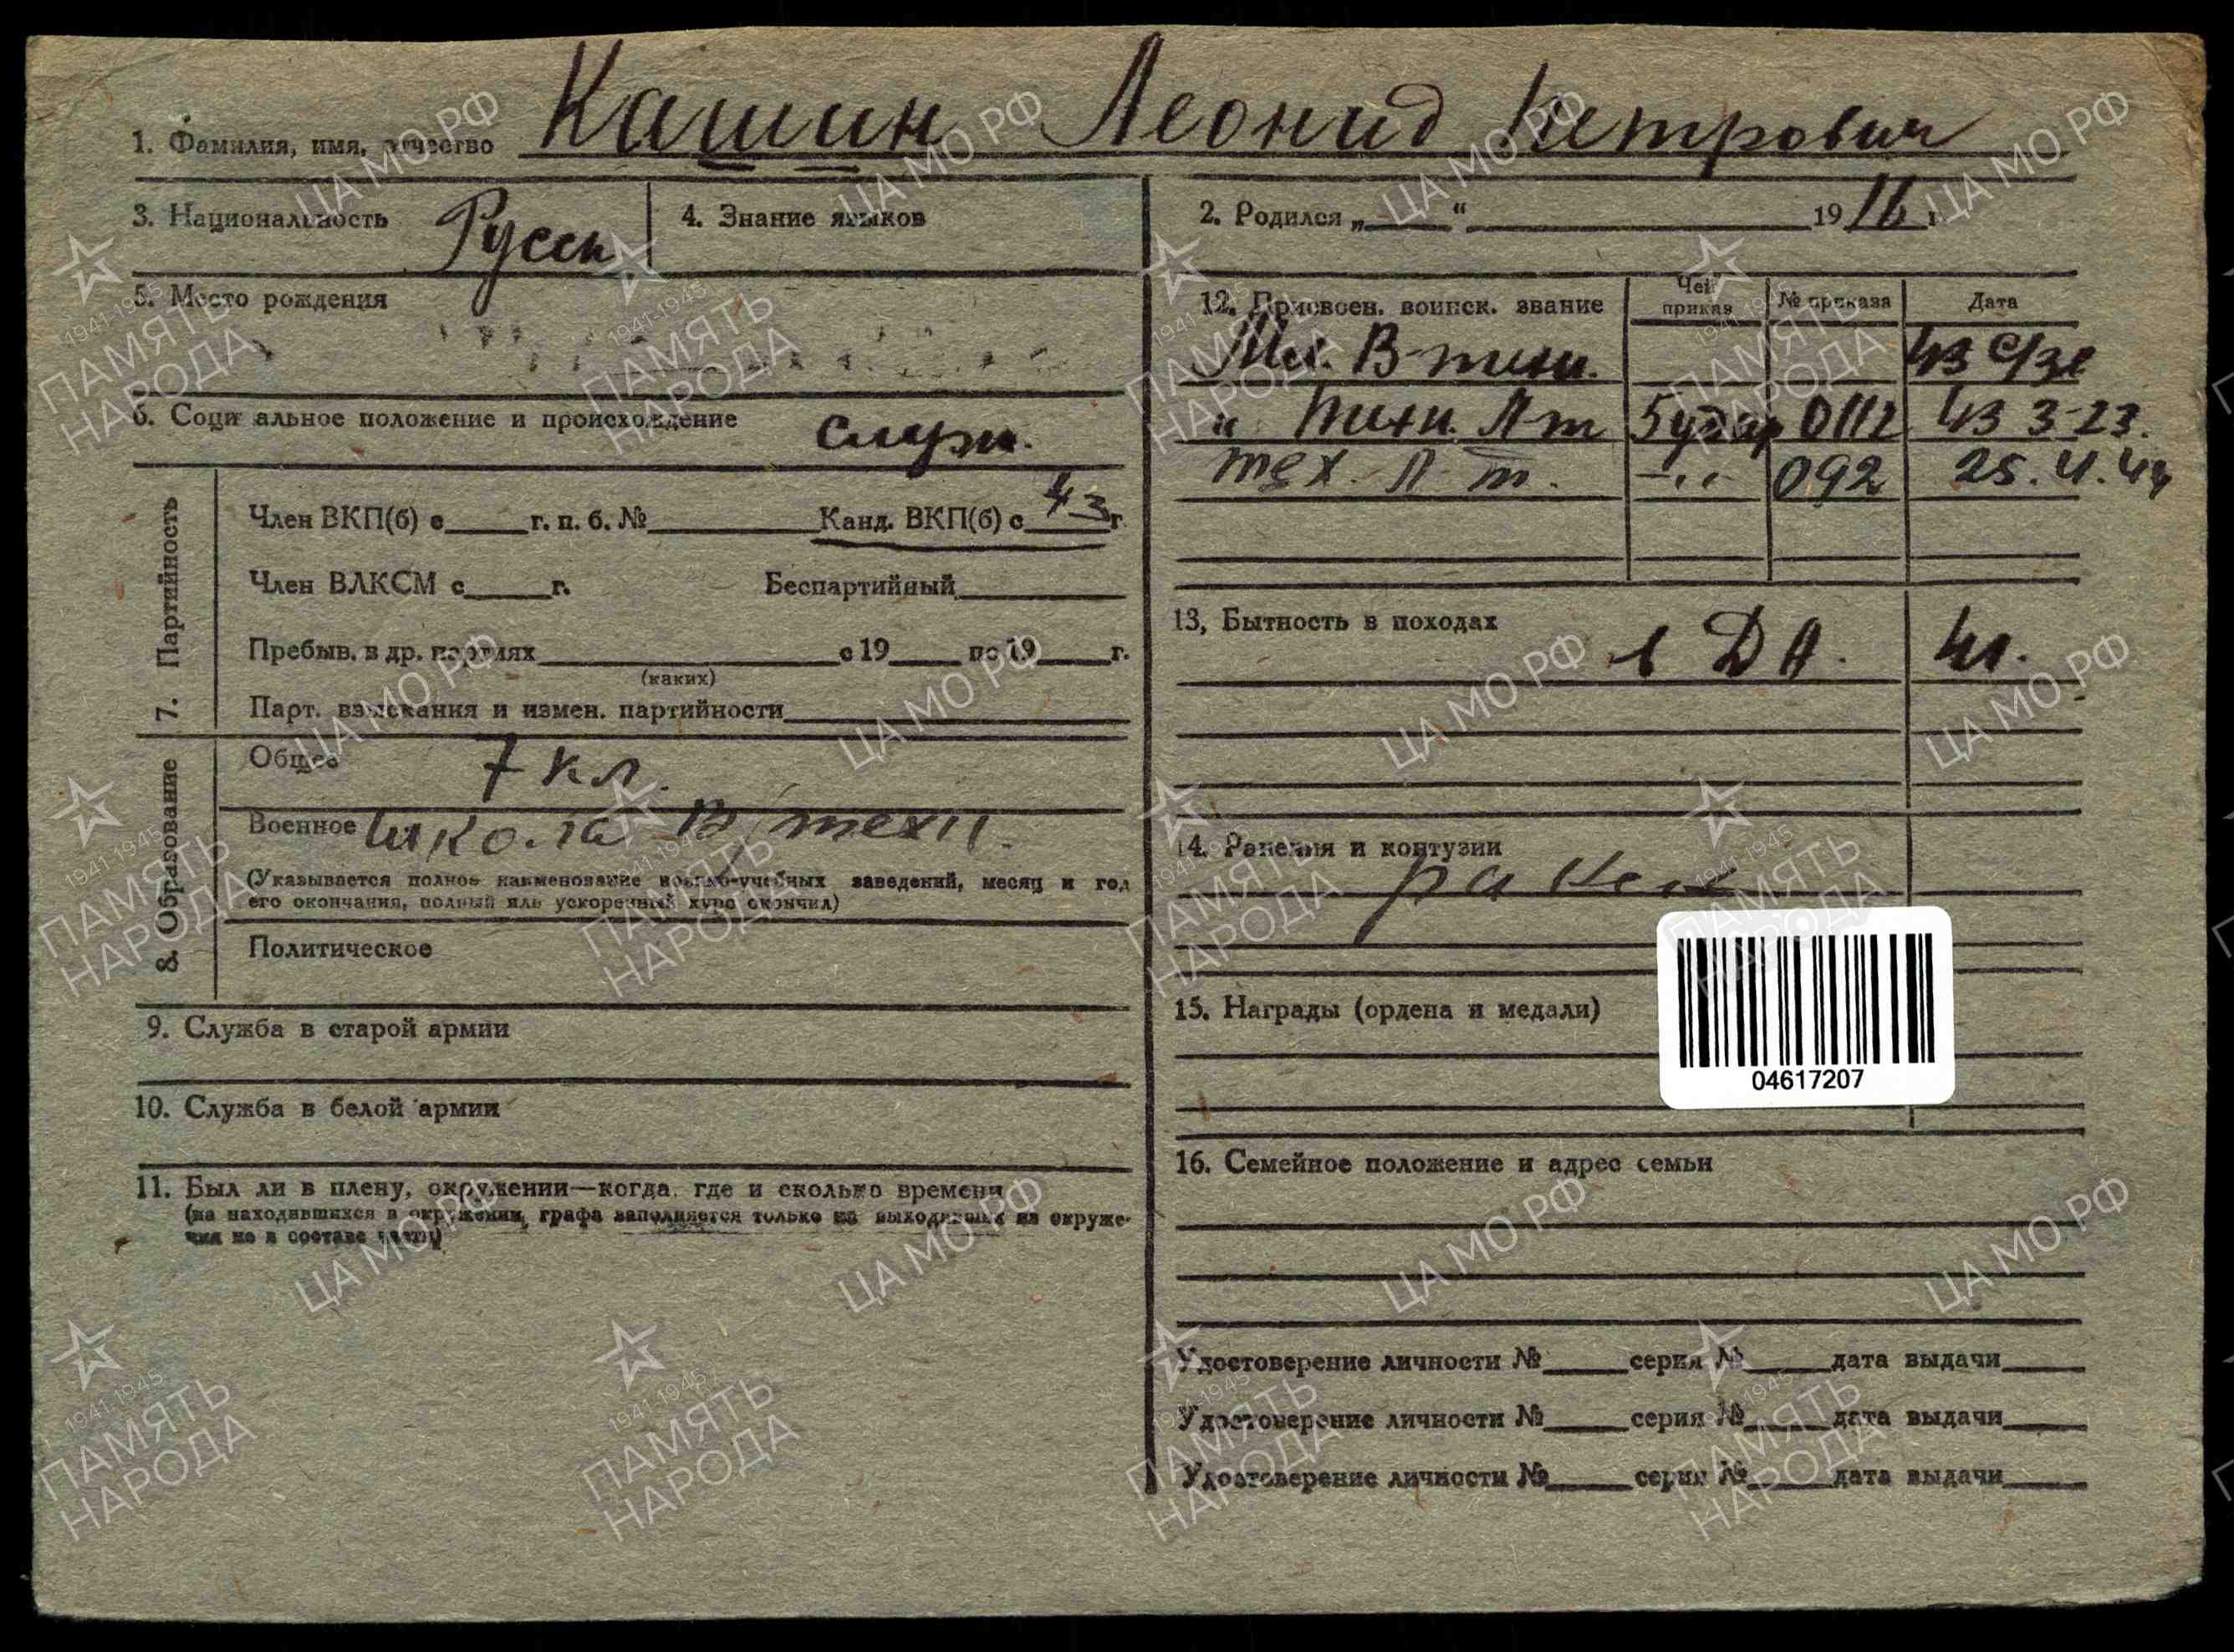 1. Фамилия, имя, отчество Кашин Леонид Петрович
3. Национальность Русск
4. Знание языков
2. Родился „ “ 1916 г.
5. Место рождения
12. Присвоен. воинск. звание Чей приказ № приказа Дата
Мл. В-техн. 43
" техн. Лт 5 удар 0112 43 3-23.
тех. Л-т. -„- 092 25.4.44
6. Социальное положение и происхождение служ.
7. Партийность
Член ВКП(б) с г. п. б. № Канд. ВКП(б) с 43 г.
Член ВЛКСМ с г. Беспартийный
Пребыв. в др. партиях с 19 по 19 г.
(каких)
Парт. взыскания и измен. партийности
13, Бытность в походах в ДА. 41.
8. Образование
Общее 7 кл.
Военное школа В/техн.
(Указывается полное наименование военно-учебных заведений, месяц и год
его окончания, полный иль ускоренный курс окончил)
Политическое
14. Ранения и контузии
ранен
9. Служба в старой армии
10. Служба в белой армии
11. Был ли в плену, окружении—когда, где и сколько времени
(на находившихся в окружении, графа заполняется только на выходивших из окруже-
ния не в составе части)
15. Награды (ордена и медали)
04617207
16. Семейное положение и адрес семьи
Удостоверение личности № серия № дата выдачи
Удостоверение личности № серия № дата выдачи
Удостоверение личности № серия № дата выдачи
ЦА МО РФ
1941-1945
ПАМЯТЬ
НАРОДА